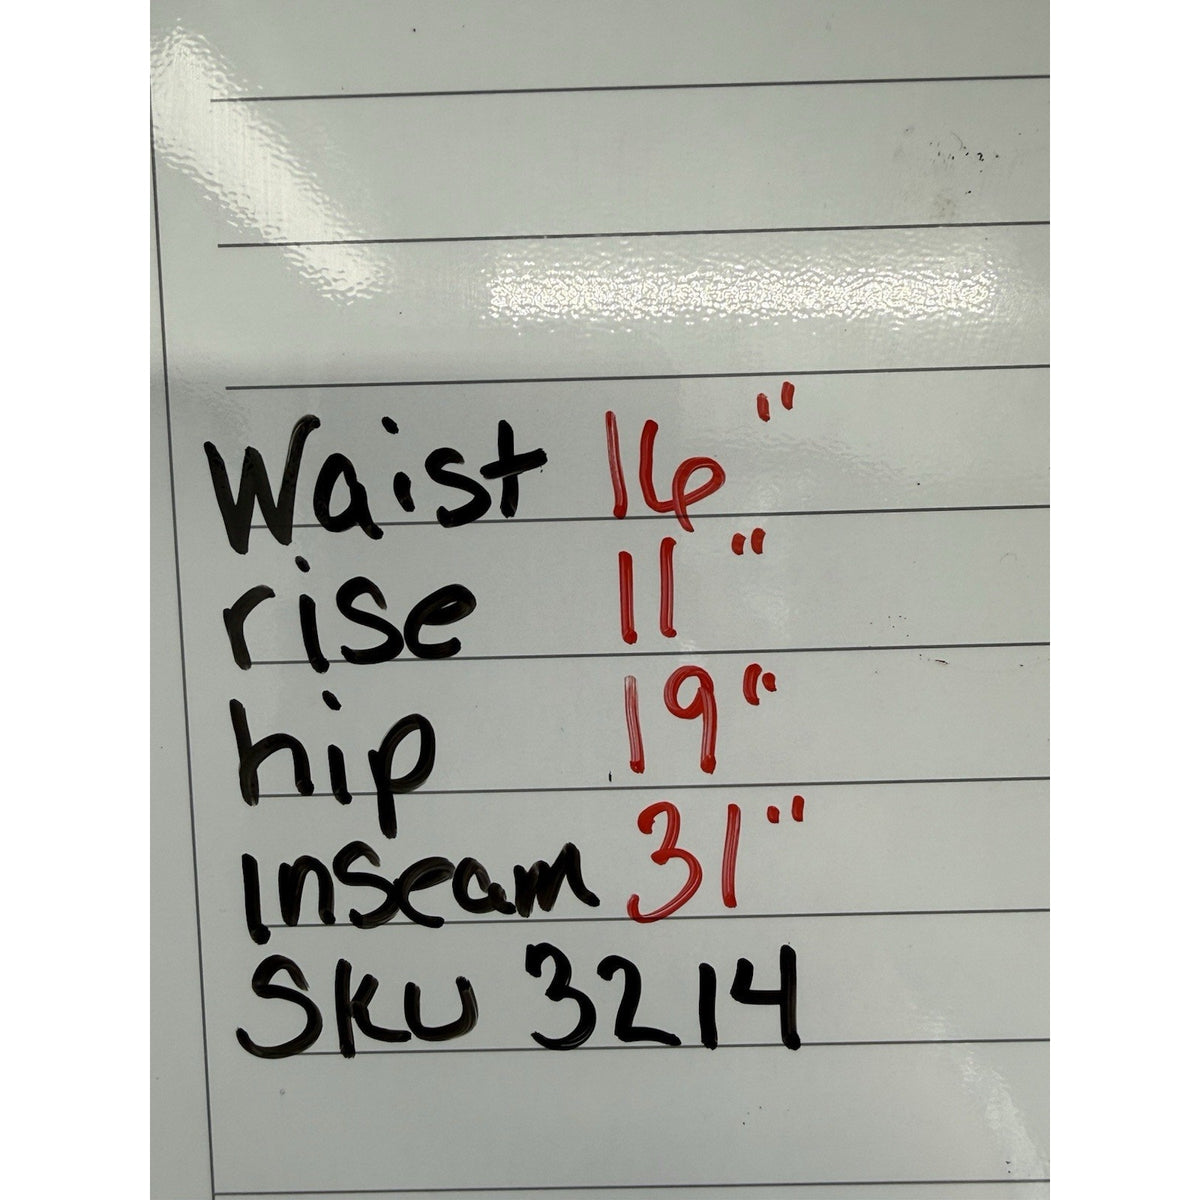 Waist 16"
rise 11"
hip 19"
Inseam 31"
SKU 3214